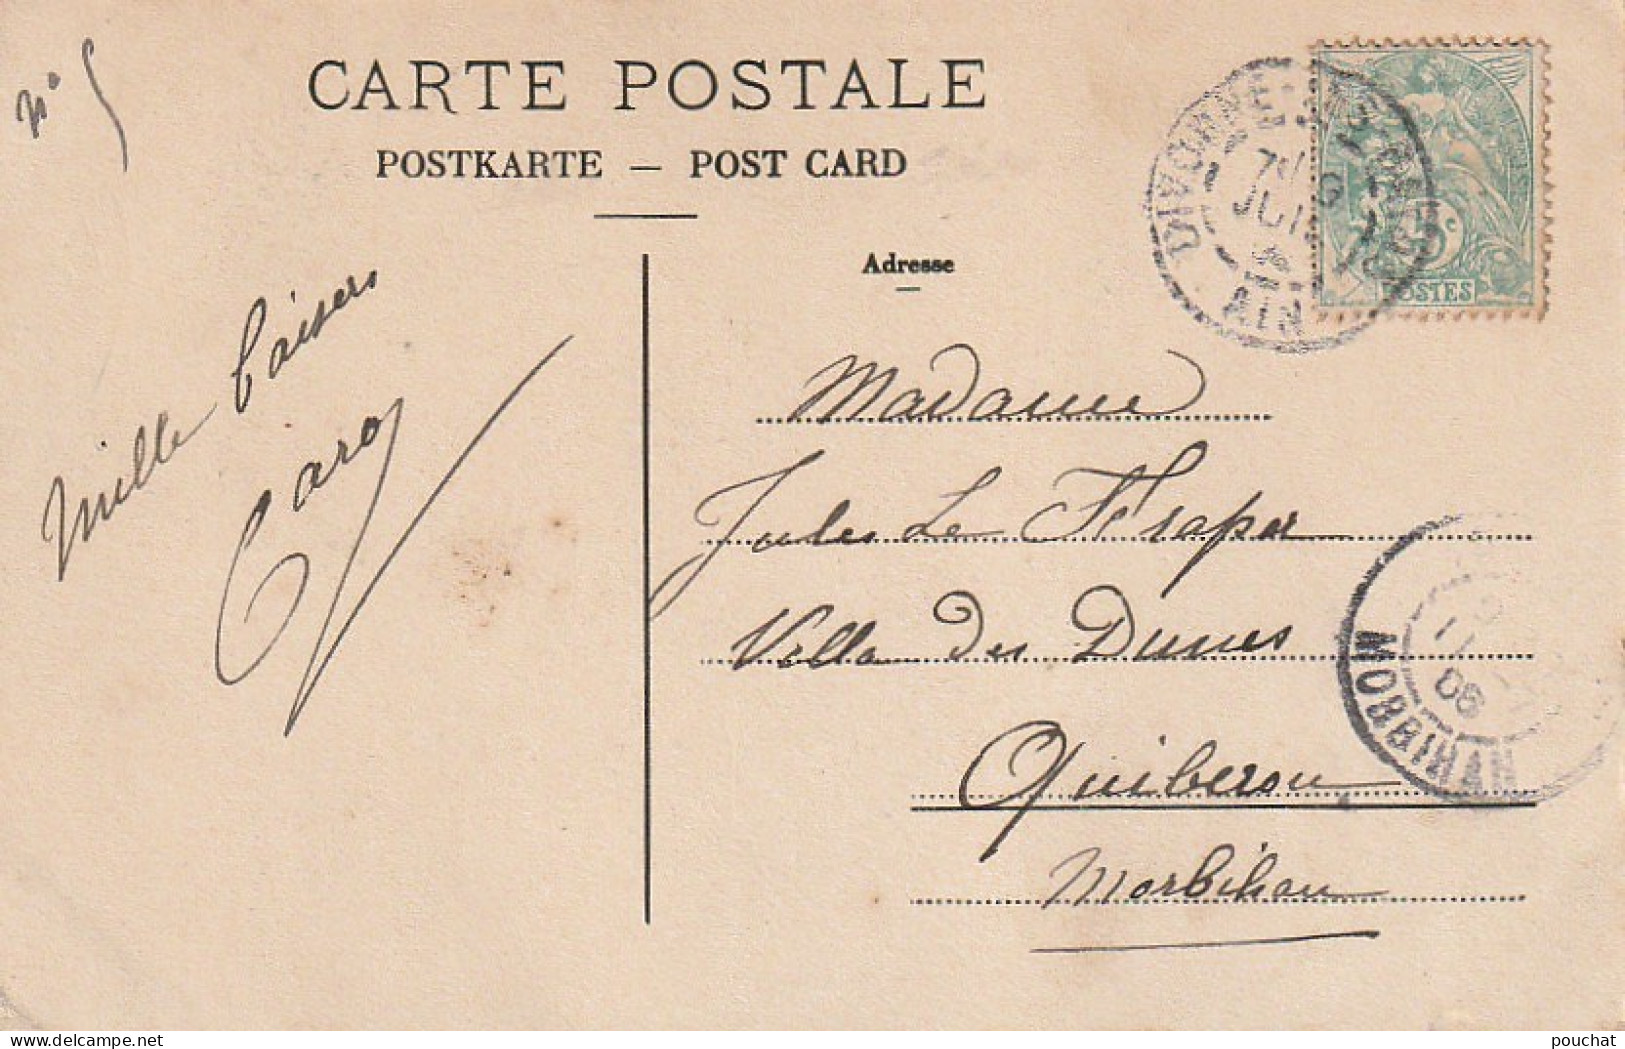 N° 5
CARTE POSTALE
POSTKARTE — POST CARD
Adresse
DIVONNE-LES-BAINS
AIN
5c
POSTES
Mille baisers
Caro
Madame
Jules Le
Villa des Dunes
Quiberon
Morbihan
MORBIHAN
06
pouchat